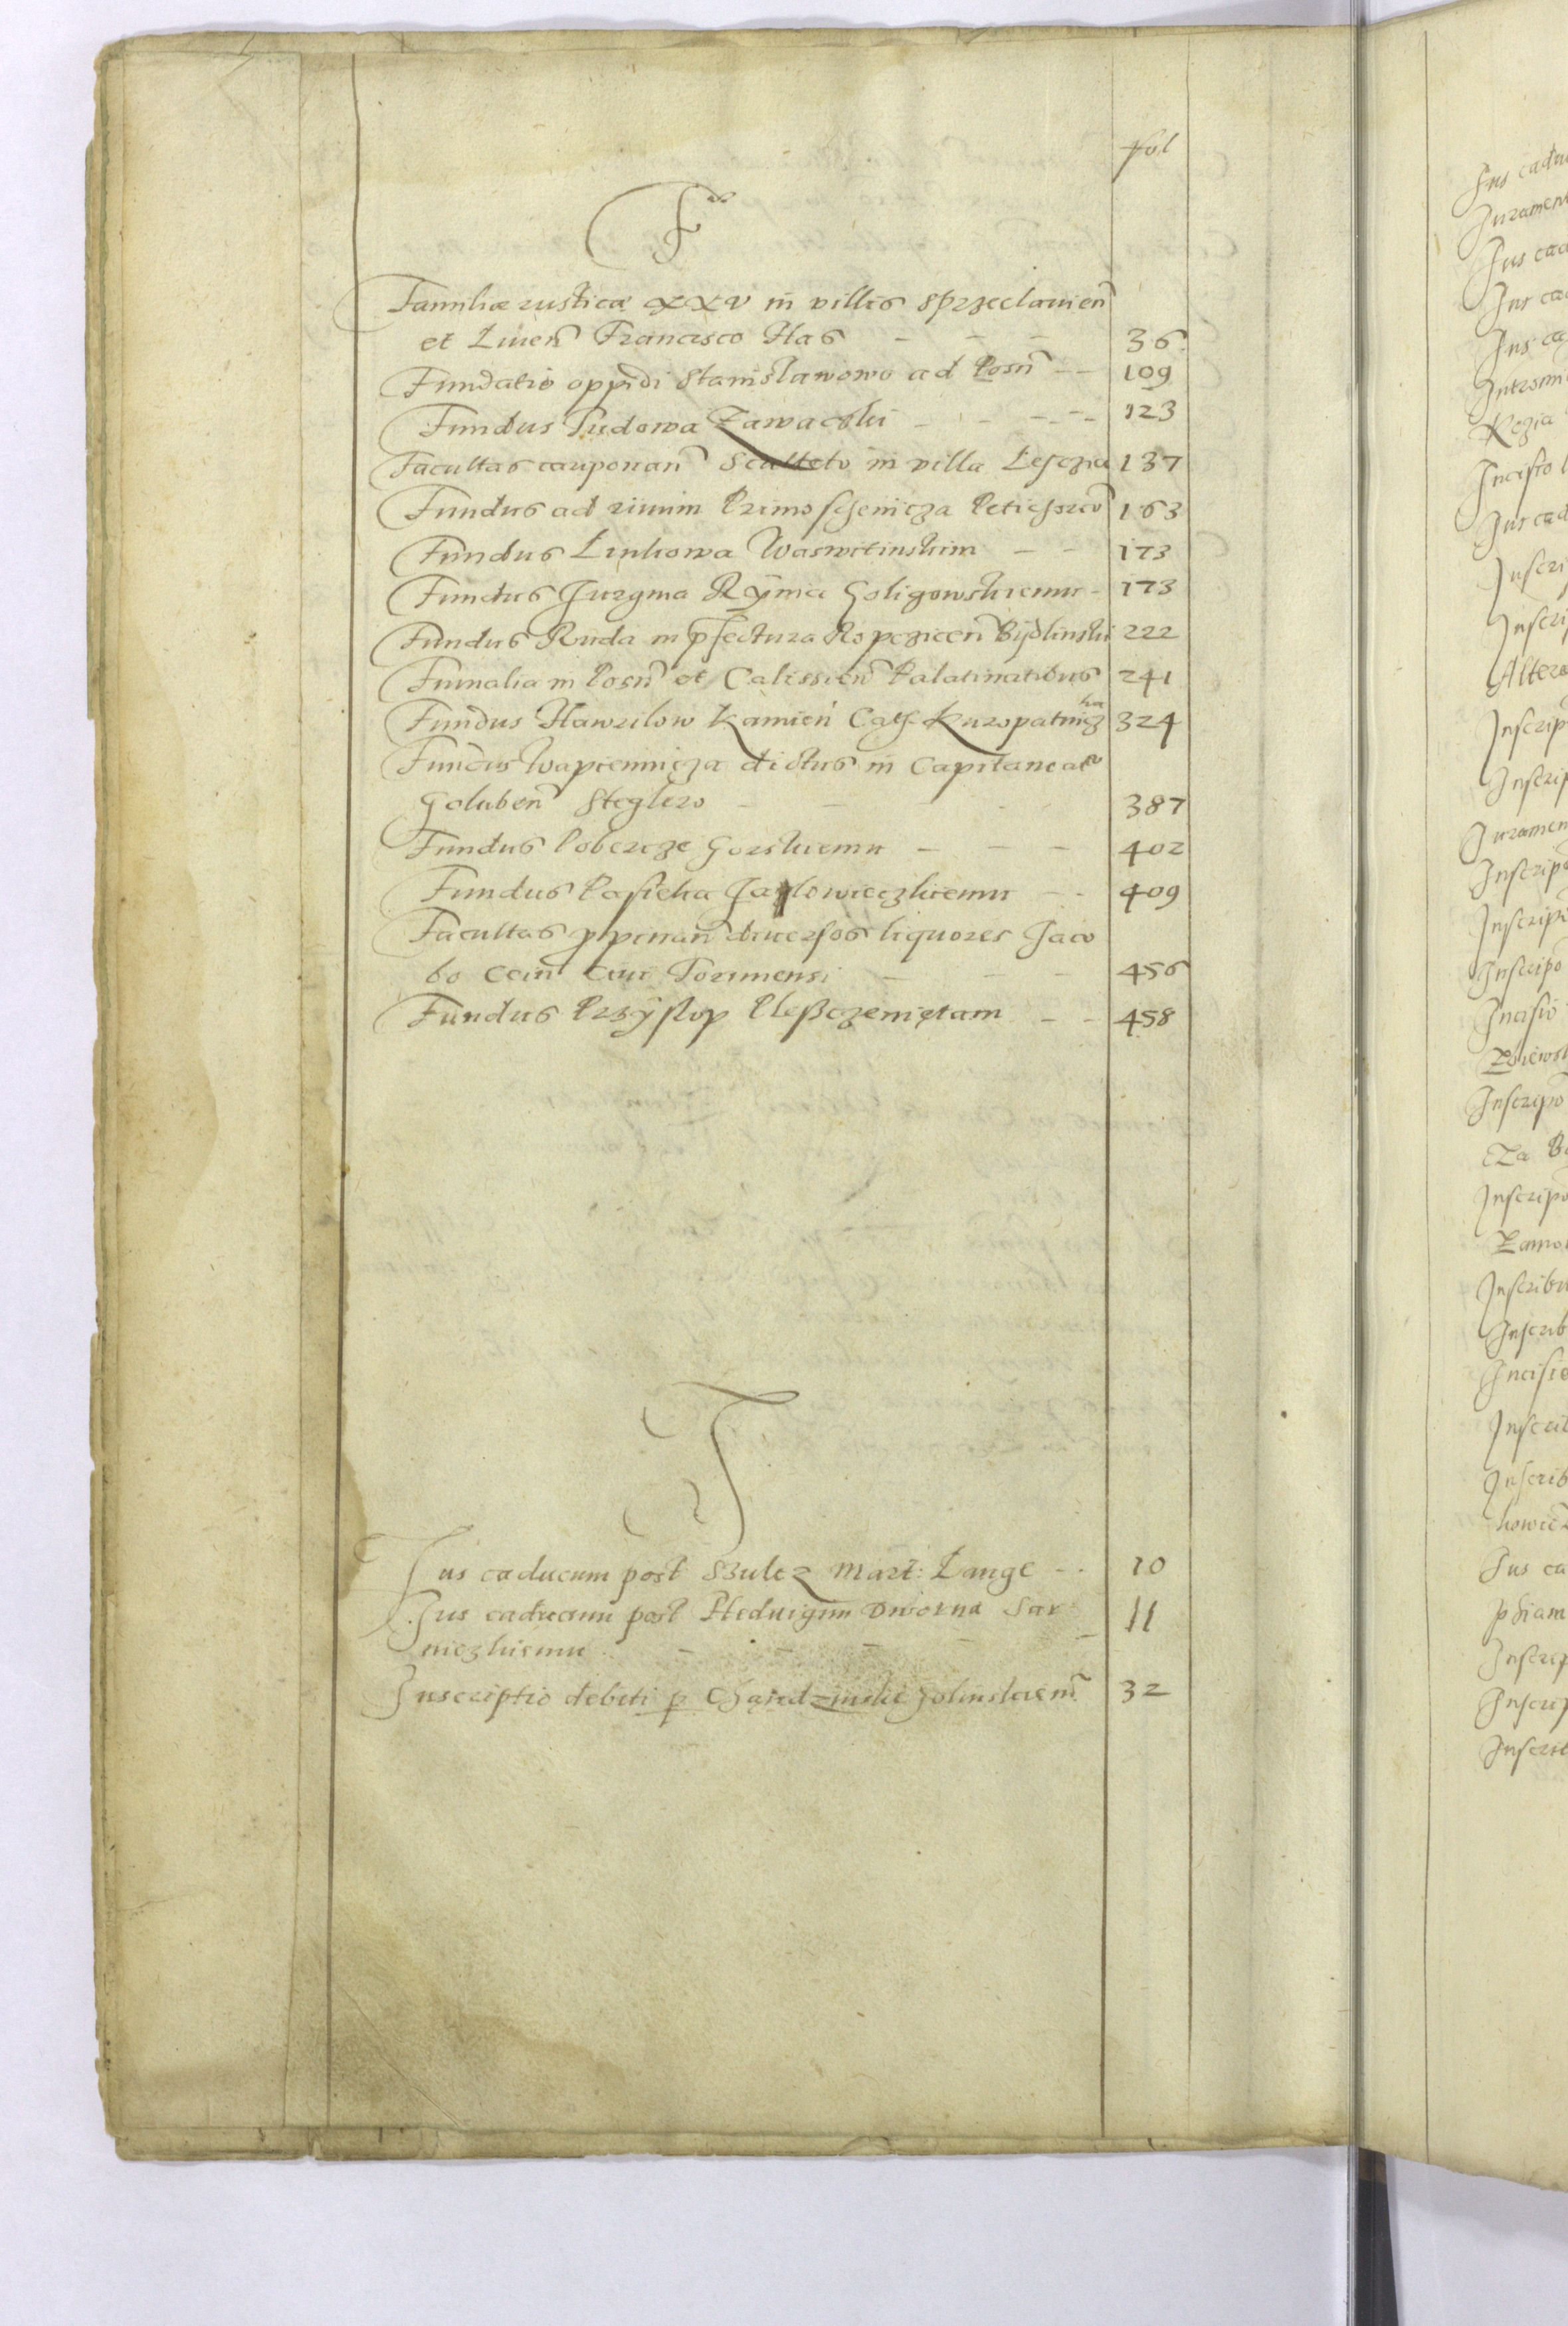 fol
F
Familiæ rusticæ XXV in villis Sprzeclavien̄
et Liuen̄ Francisco Has - - - 36
Fundatio oppidi Stanisławowo ad Posn̄ - - 109
Fundus Pudowa Zawacski - - - - 123
Facultas cauponan̄ Sculteto in villa Lesczia 137
Fundus ad riuum Primoschenicza 163
Fundus Linkowa - - 173
Fundus Jurgina Ryma Goligowskiemu - 173
Fundus Ruda in p̄fectura Ropczicen̄ Bydlinski 222
Fumalia in Posn̄ et Calissien̄ Palatinatibus 241
Fundus Hawrilow Kamień Kuropatnicz 324
ka
Fundus Wapiennicza dictus in Capitaneatu
Goluben̄ Steglero - - 387
Fundus Pobercze Gorskiemu - - - 402
Fundus Pasieka Jazlowieczkiemu - - 409
Facultas ꝓpinan̄ diuersos liquores Jaco
bo ciui Torunensi - - - 456
Fundus Przystop Plesczeniętam - - 458
J
Jus caducum post Szulcz Mart: Lange - - 10
Jus caducum post Heduigim Dworna Sar 11
niczkiemu - - - - -
Inscriptio debiti ꝑ Golinskiem̄ 32
Jus cadu
Jurament
Jus cad
Jus cad
Jus ca
Intromi
Regia
Incisio
Jus cad
Inscri
Inscrip
Altera
Inscrip
Inscrip
Juramen
Inscripo
Inscripo
Inscripo
Incisio
Inscripo
cza
Inscripo
Zamo
Inscribu
Inscrib
Incisio
Inscrib
Inscrib
Jus ca
Inscrip
Inscrip
Inscrib